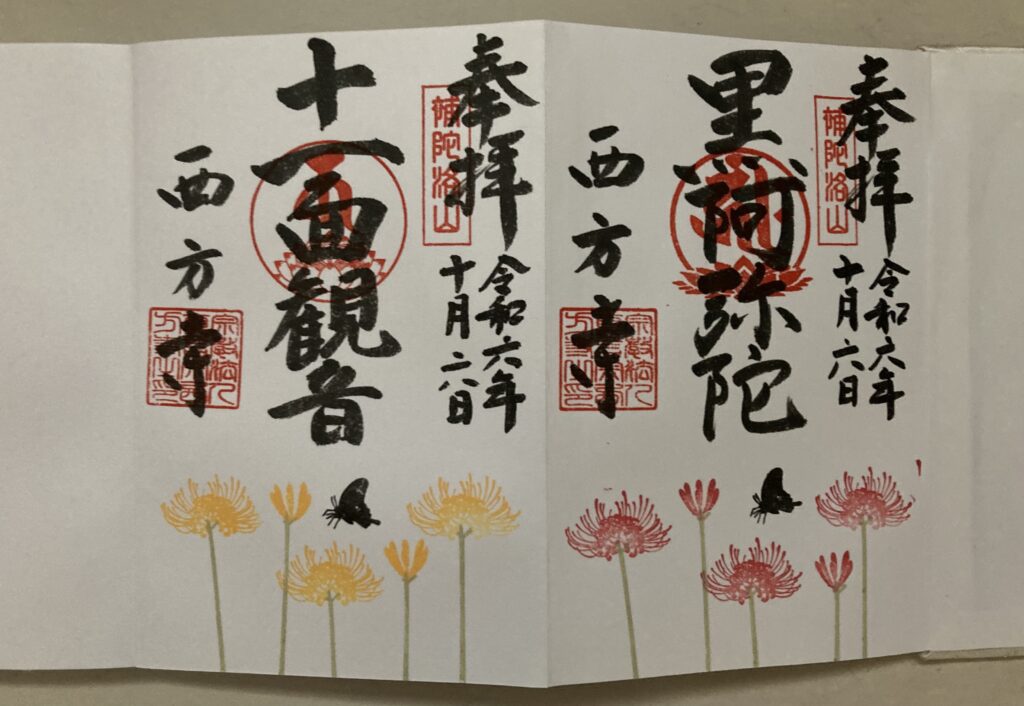 奉拝
補陀洛山
令和六年
十月六日
黒阿弥陀
西方寺
奉拝
補陀洛山
令和六年
十月六日
十一面観音
西方寺